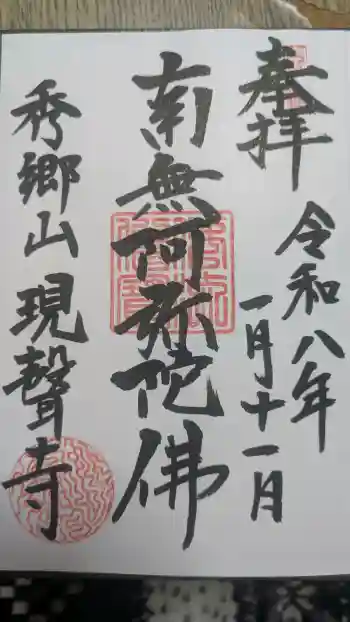 奉拝
令和八年
一月十一月
南無阿弥陀佛
秀郷山現聲寺